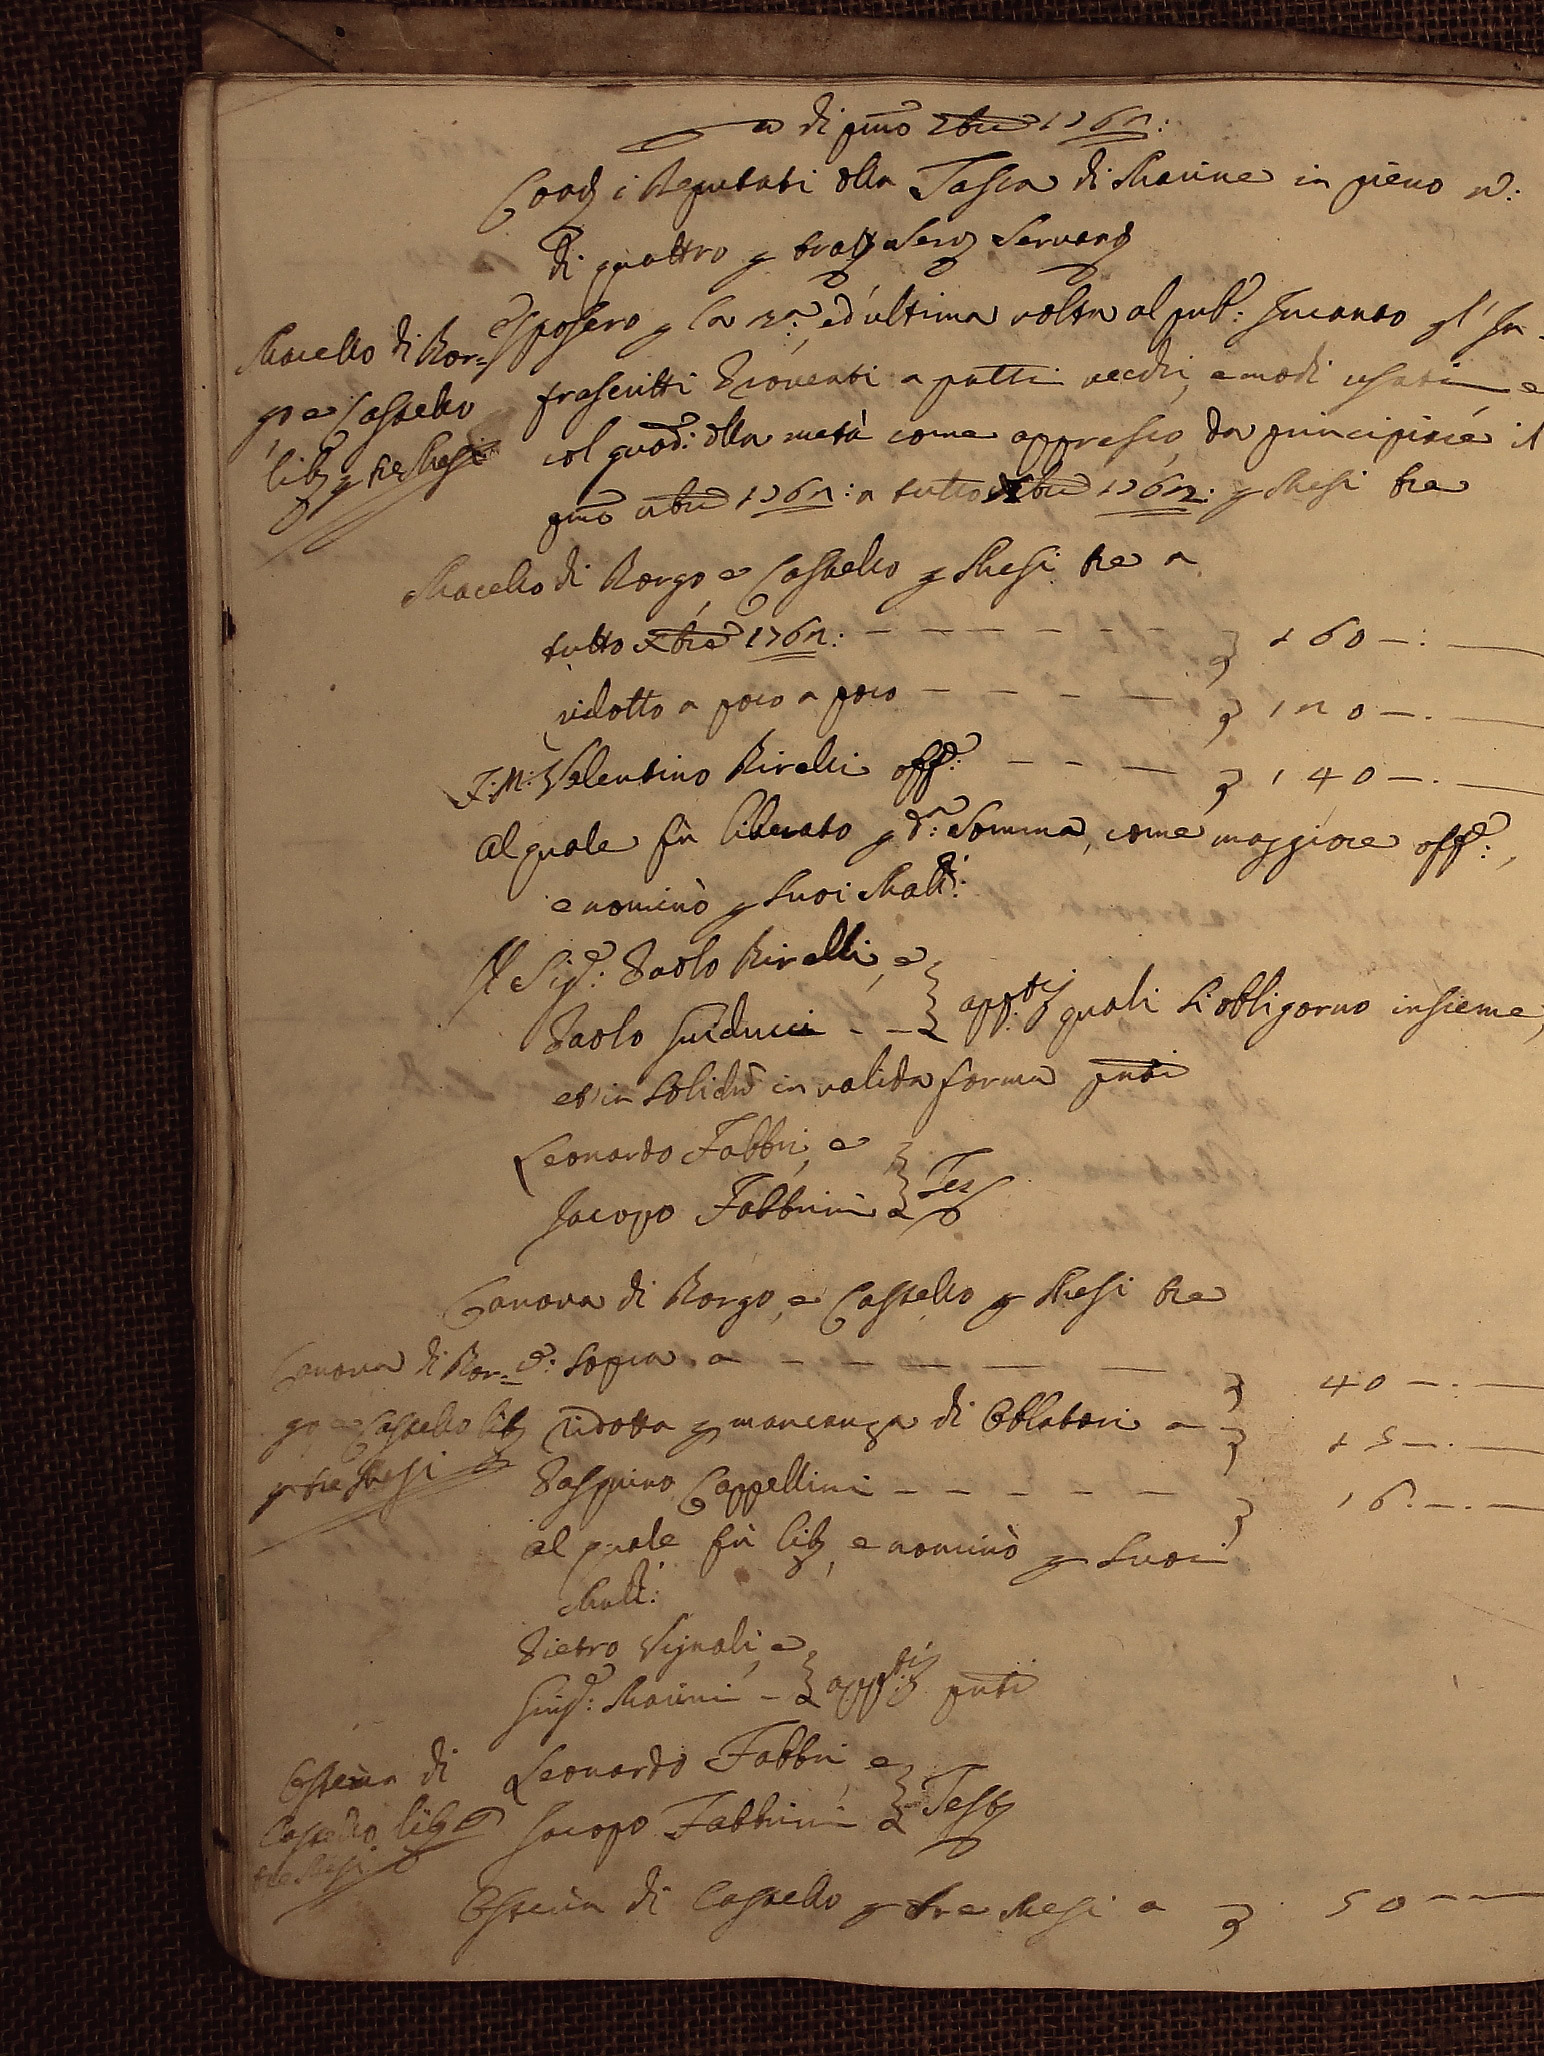 a di pmo 2bre 1761:
Coad i Deputati dlla Tasca di Marine in pieno n:
di quattro p trat Serv Servand
esposero p la 2a: ed ultima volta al pub: Incanto gl' In-
frascritti Proventi a patti vecchi, e modi usati e
col quad: dlla metà come appresso, da principiare il
pmo 1761: a tutto Xbre 1761: p Mesi tre
Macello di Bor=
go e Castello
lib p tre Mesi
Macello di Borgo e Castello p Mesi tre a
tutto Xbre 1761: - - - - - - - 160 -:
ridotto a poco a poco - - - - 110 -.
F: M: Valentino Birelli off: - - - 140 -.
al quale fù liberato p d: Somma, come maggiore off:,
e nominò p Suoi Mall:
Il Sig: Paolo Birelli, e
Paolo Guiducci - - app: quali si obligorno insieme,
et in solidu in valida forma pnti
Leonardo Fabbri, e
Jacopo Fabbrini Tes
Canova di Borgo, e Castello p Mesi tre
d: sopra a - - - - - 40 -.
Canova di Bor=
go e Castello lib
p tre Mesi
ridotta p mancanza di Oblatori a 15 -.
Pasquino Cappellini - - - - - 16. -.
al quale fù lib, e nominò p Suoi
Mall:
Pietro Vignali, e
Giuse: Marini - app: pnti
Leonardo Fabbri, e
Jacopo Fabbrini Test
Osteria di
Castello lib p
tre Mesi
Osteria di Castello p tre Mesi a 50 - -